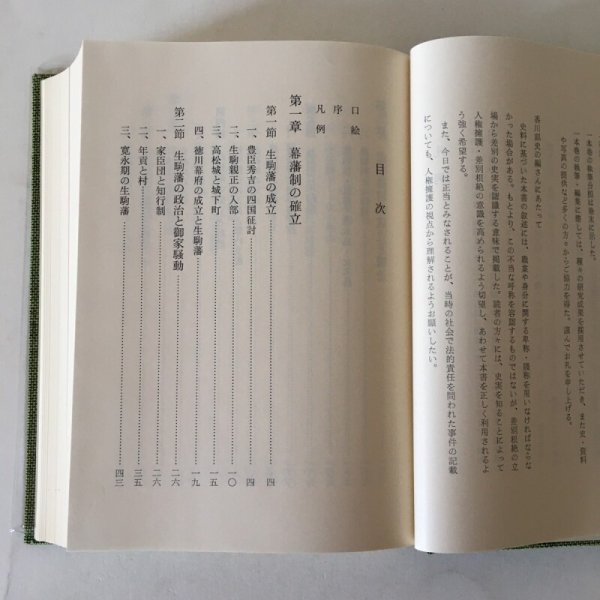 一本巻の執筆分担は巻末に示した。
一本巻の執筆・編集に際しては、種々の研究成果を採用させていただき、また史・資料
や写真の提供など多くの方々からご協力を得た。謹んでお礼を申し上げる。
香川県史の編さんにあたって
史料に基づいた本書の叙述には、職業や身分に関する卑称・賤称を用いなければならな
かった場合がある。もとより、この不当な呼称を容認するものではないが、差別根絶の立
場から差別の史実を認識する意味で掲載した。読者の方々には、史実を知ることによって
人権擁護、差別根絶の意識を高められるよう切望し、あわせて本書を正しく利用されるよ
う強く希望する。
また、今日では正当とみなされることが、当時の社会で法的責任を問われた事件の記載
についても、人権擁護の視点から理解されるようお願いしたい。
目次
口絵
序
凡例
第一章 幕藩制の確立
第一節 生駒藩の成立……四
一、豊臣秀吉の四国征討……四
二、生駒親正の入部……一〇
三、高松城と城下町……一五
四、徳川幕府の成立と生駒藩……一九
第二節 生駒藩の政治と御家騒動……二六
一、家臣団と知行制……二六
二、年貢と村……三五
三、寛永期の生駒藩……四三